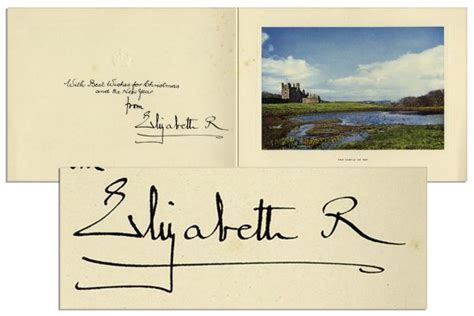 With Best Wishes for Christmas
and the New Year
from
Elizabeth R
THE CASTLE OF MEY
Elizabeth R